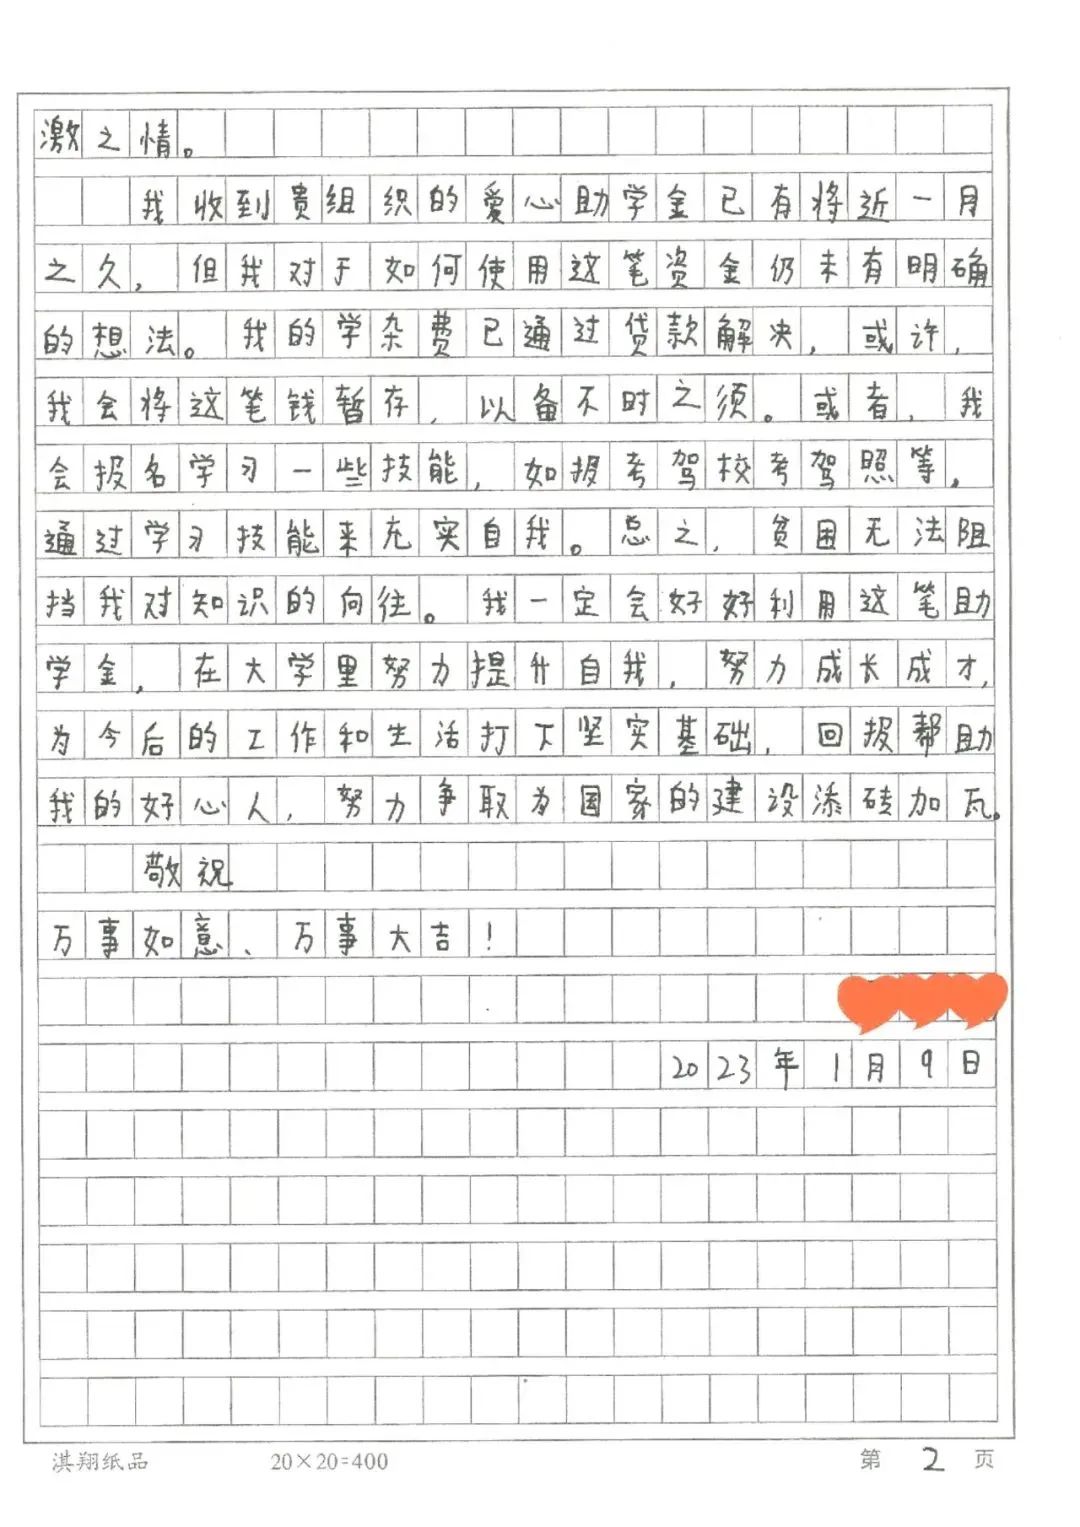 激之情。
我收到贵组织的爱心助学金已有将近一月
之久，但我对于如何使用这笔资金仍未有明确
的想法。我的学杂费已通过贷款解决，或许，
我会将这笔钱暂存，以备不时之须。或者，我
会报名学习一些技能，如报考驾校考驾照等，
通过学习技能来充实自我。总之，贫困无法阻
挡我对知识的向往。我一定会好好利用这笔助
学金，在大学里努力提升自我，努力成长成才，
为今后的工作和生活打下坚实基础，回报帮助
我的好心人，努力争取为国家的建设添砖加瓦。
敬祝
万事如意、万事大吉！
2023年1月9日
淇翔纸品 20×20=400 第 2 页